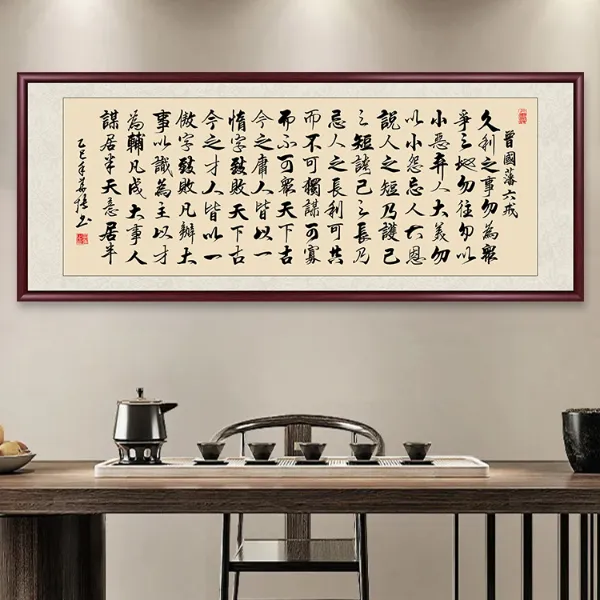 曾國藩六戒
久利之事勿為衆
爭之地勿往勿以
小惡弃人大美勿
以小怨忘人大恩
説人之短乃護己
之短談己之長乃
忌人之長利可共
而不可獨謀可寡
而不可衆天下古
今之庸人皆以一
惰字致敗天下古
今之才人皆以一
傲字致敗凡辦大
事以識為主以才
為輔凡成大事人
謀居半天意居半
乙巳年